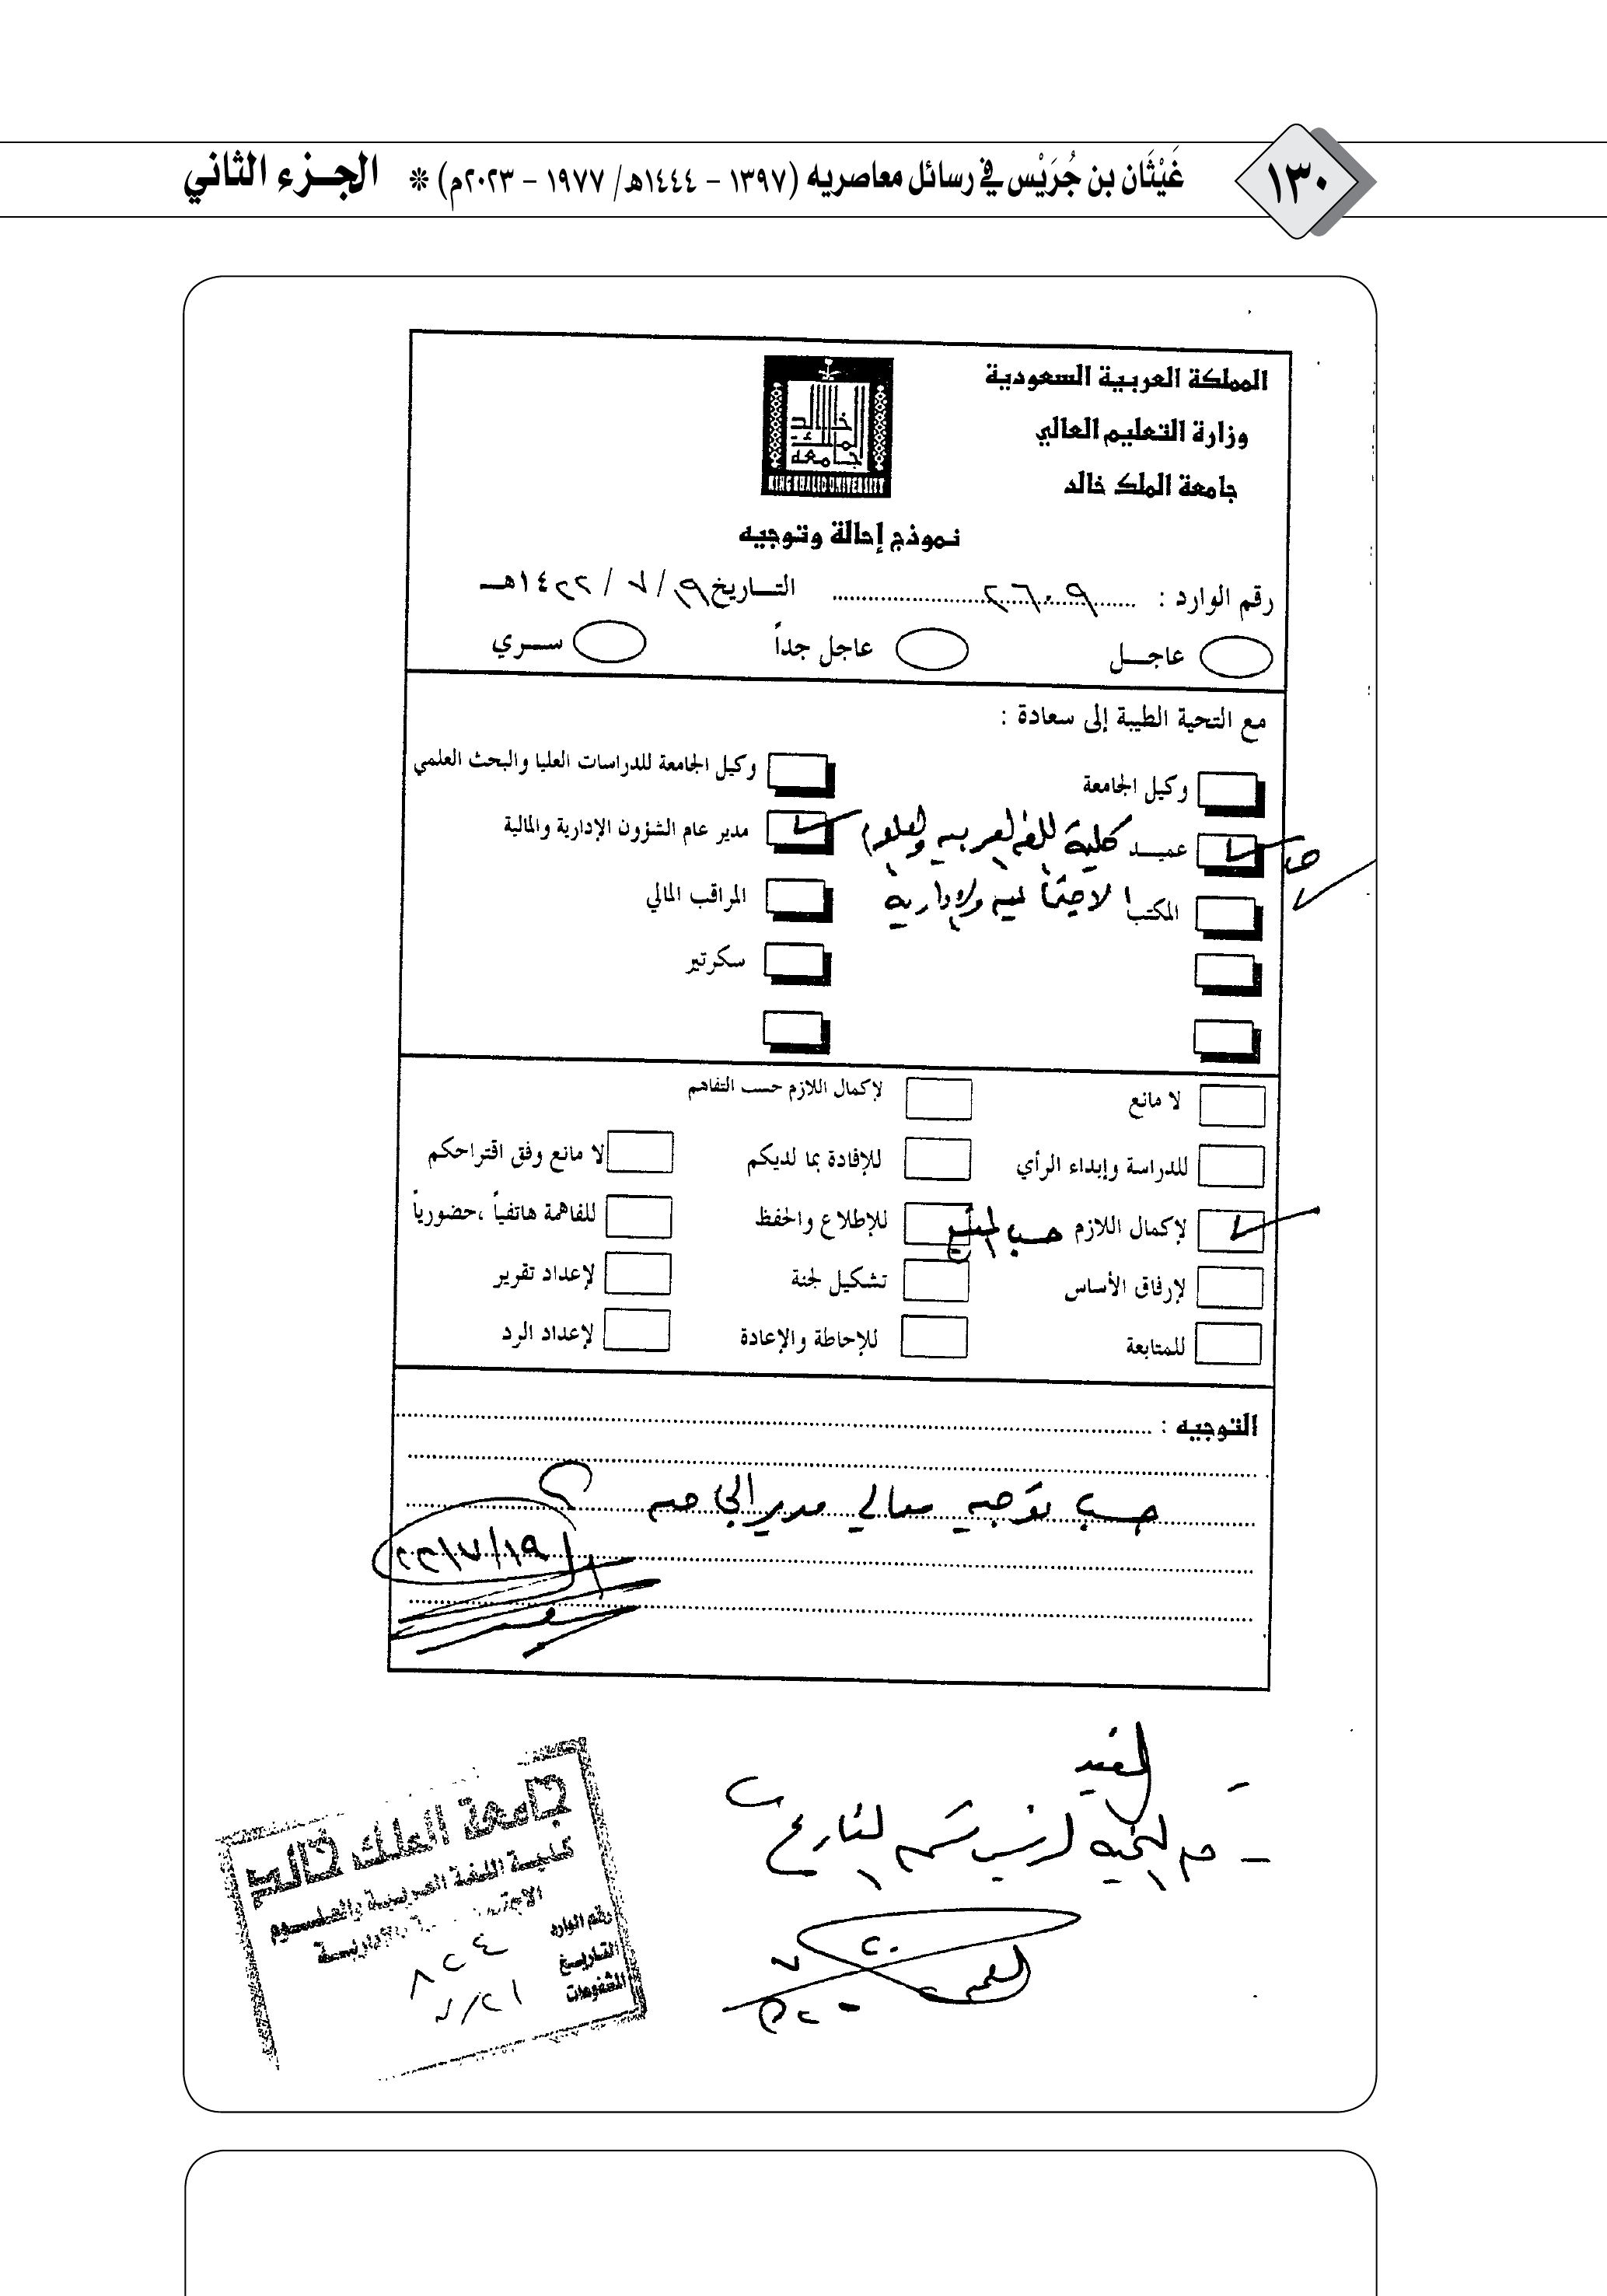 ١٣٠
غَيْثَان بن جُرَيْس في رسائل معاصريه (١٣٩٧ – ١٤٤٤هـ/ ١٩٧٧ – ٢٠٢٣م) ❊ الجزء الثاني
المملكة العربية السعودية
وزارة التعليم العالي
جامعة الملك خالد
KING KHALID UNIVERSITY
نموذج إحالة وتوجيه
رقم الوارد : ٢٦٠٩ التـــاريخ ١٩/ ٧ / ١٤٢٢هـــ
عاجـــل عاجل جداً ســـري
مع التحية الطيبة إلى سعادة :
وكيل الجامعة وكيل الجامعة للدراسات العليا والبحث العلمي
عميـــد كلية اللغة العربية والعلوم مدير عام الشؤون الإدارية والمالية
المكتب الاجتماعية والإدارية المراقب المالي
سكرتير
لا مانع لإكمال اللازم حسب التفاهم
للدراسة وإبداء الرأي للإفادة بما لديكم لا مانع وفق اقتراحكم
لإكمال اللازم حسب المتبع للإطلاع والحفظ للفاهمة هاتفياً ،حضورياً
لإرفاق الأساس تشكيل لجنة لإعداد تقرير
للمتابعة للإحاطة والإعادة لإعداد الرد
التوجيه :
حسب توجيه معالي مدير الجامعة
٢٢/٧/١٩
مع التحية لرئيس قسم التاريخ
العميد
٢٠
٧
جامعة الملك خالد
كـليـة اللغة العـربيـة والعلـــوم
الاجتماعية والإداريــة
رقم الوارد ٨٢٤
التاريخ ٧/٢١
المشفوعات